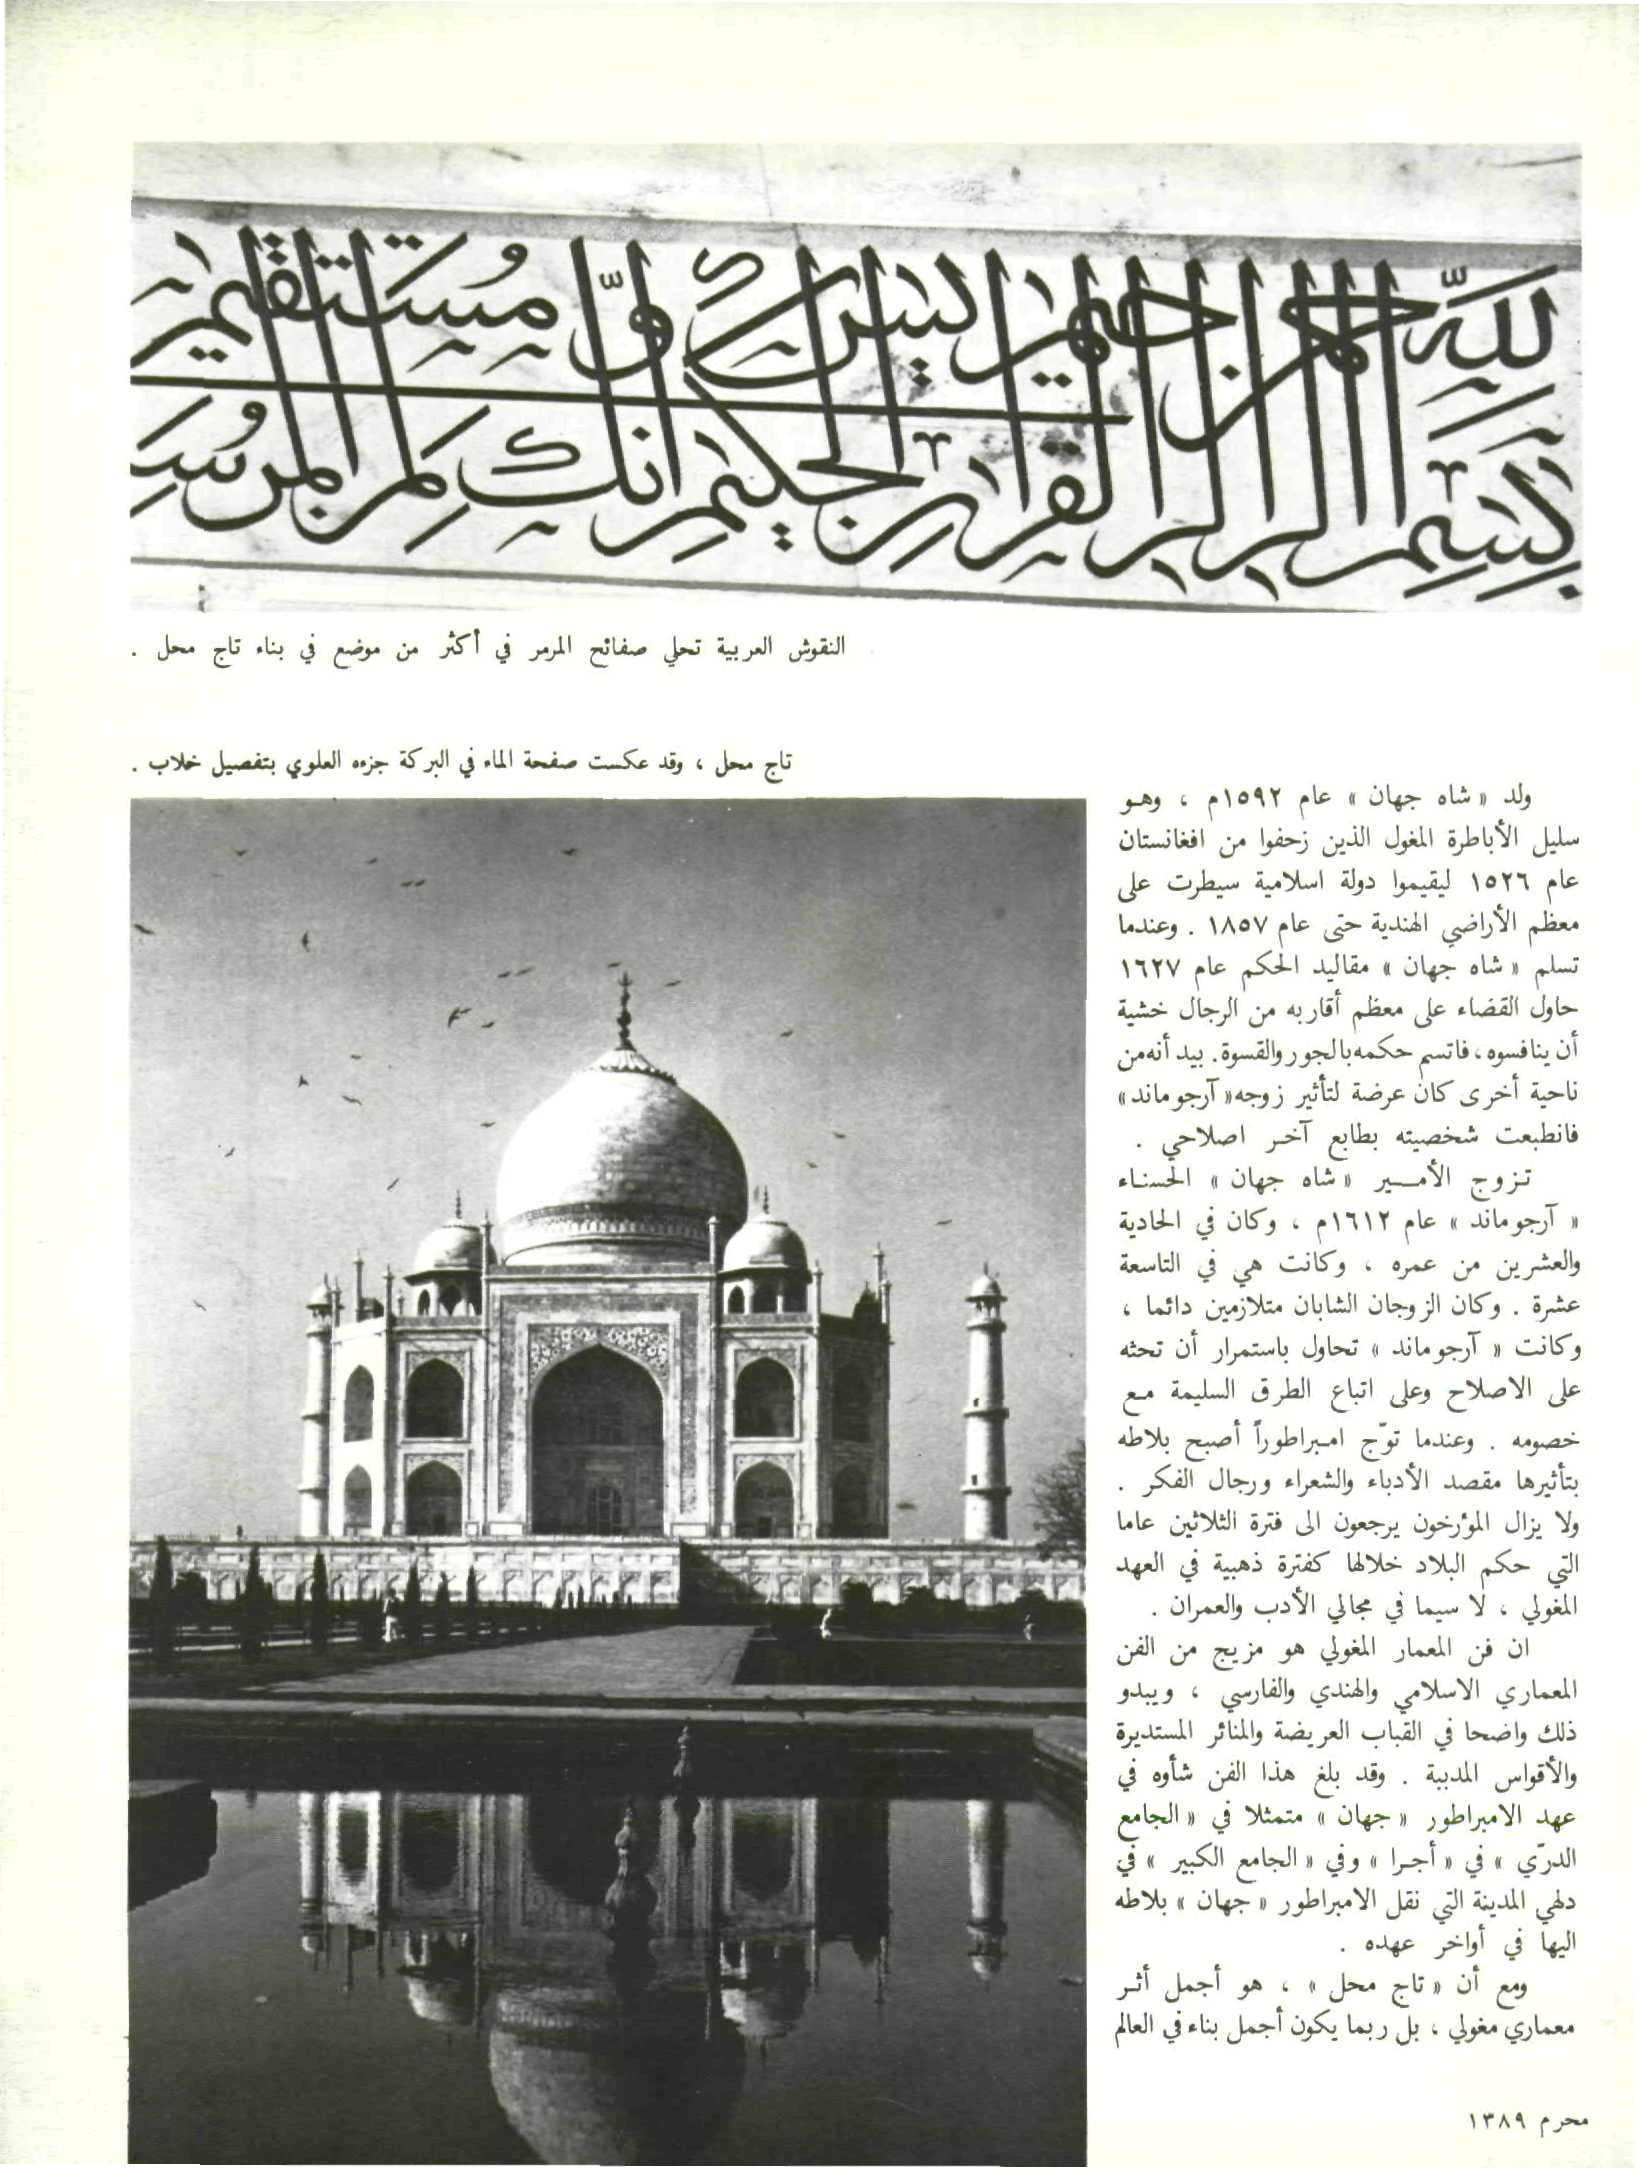 بسم الله الرحمن الرحيم يس
النقوش العربية تحلي صفائح المرمر في أكثر من موضع في بناء تاج محل .
تاج محل ، وقد عكست صفحة الماء في البركة جزءه العلوي بتفصيل خلاب .
ولد « شاه جهان » عام ١٥٩٢م ، وهـو
سليل الأباطرة المغول الذين زحفوا من افغانستان
عام ١٥٢٦ ليقيموا دولة اسلامية سيطرت على
معظم الأراضي الهندية حتى عام ١٨٥٧ . وعندما
تسلم « شاه جهان » مقاليد الحكم عام ١٦٢٧
حاول القضاء على معظم أقاربه من الرجال خشية
أن ينافسوه، فاتسم حكمه بالجور والقسوة. بيد أنه من
ناحية أخرى كان عرضة لتأثير زوجه « آرجوماند »
فانطبعت شخصيته بطابع آخـر اصلاحي .
تـزوج الأمـــير « شاه جهان » الحسنـاء
« آرجوماند » عام ١٦١٢م ، وكان في الحادية
والعشرين من عمره ، وكانت هي في التاسعة
عشرة . وكان الزوجان الشابان متلازمين دائما ،
وكانت « آرجوماند » تحاول باستمرار أن تحثه
على الاصلاح وعلى اتباع الطرق السليمة مـع
خصومه . وعندما توّج امـبراطوراً أصبح بلاطه
بتأثيرها مقصد الأدباء والشعراء ورجال الفكر .
ولا يزال المؤرخون يرجعون الى فترة الثلاثين عاما
التي حكم البلاد خلالها كفترة ذهبية في العهد
المغولي ، لا سيما في مجالي الأدب والعمران .
ان فن المعمار المغولي هو مزيج من الفن
المعماري الاسلامي والهندي والفارسي ، ويبدو
ذلك واضحا في القباب العريضة والمنائر المستديرة
والأقواس المدببة . وقد بلغ هذا الفن شأوه في
عهد الامبراطور « جهان » متمثلا في « الجامع
الدرّي » في « أجـرا » وفي « الجامع الكبير » في
دلهي المدينة التي نقل الامبراطور « جهان » بلاطه
اليها في أواخر عهده .
ومع أن « تاج محل » ، هو أجمل أثـر
معماري مغولي ، بل ربما يكون أجمل بناء في العالم
محرم ١٣٨٩